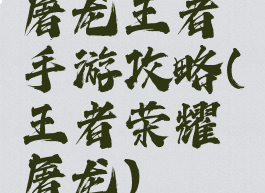 屠龙王者
手游攻略(
王者荣耀
屠龙)